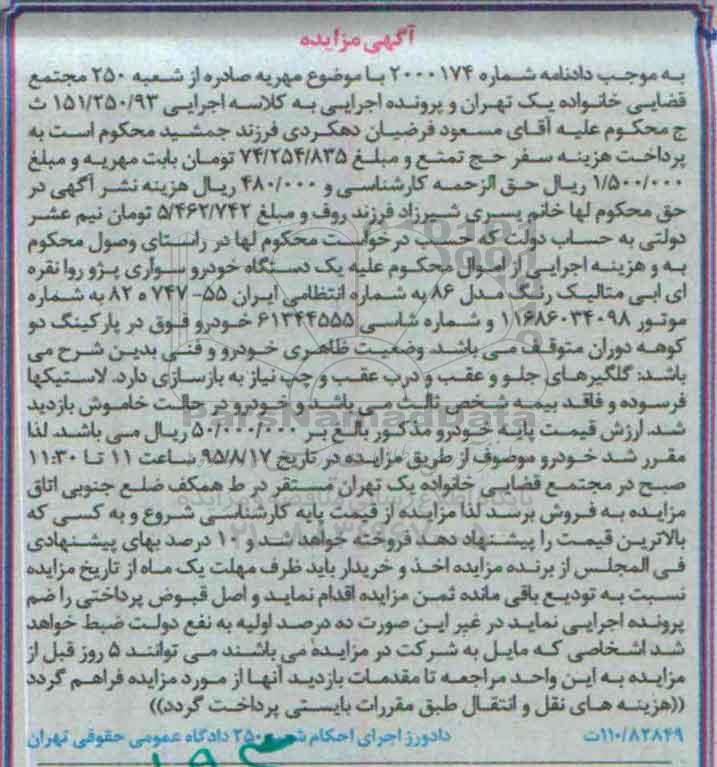 آگهی مزایده
به موجب دادنامه شماره ۲۰۰۰۱۷۴ با موضوع مهریه صادره از شعبه ۲۵۰ مجتمع
قضایی خانواده یک تهران و پرونده اجرایی به کلاسه اجرایی ۱۵۱/۲۵۰/۹۳ ث
ج محکوم علیه آقای مسعود فرضیان دهکردی فرزند جمشید محکوم است به
پرداخت هزینه سفر حج تمتع و مبلغ ۷۴/۲۵۴/۸۳۵ تومان بابت مهریه و مبلغ
۱/۵۰۰/۰۰۰ ریال حق الزحمه کارشناسی و ۴۸۰/۰۰۰ ریال هزینه نشر آگهی در
حق محکوم لها خانم پسری شیرزاد فرزند روف و مبلغ ۵/۴۶۲/۷۴۲ تومان نیم عشر
دولتی به حساب دولت که حسب درخواست محکوم لها در راستای وصول محکوم
به و هزینه اجرایی از اموال محکوم علیه یک دستگاه خودرو سواری پژو روا نقره
ای ابی متالیک رنگ مدل ۸۶ به شماره انتظامی ایران ۵۵- ۷۴۷ ه ۸۲ به شماره
موتور ۱۱۶۸۶۰۳۴۰۹۸ و شماره شاسی ۶۱۳۴۴۵۵۵ خودرو فوق در پارکینگ دو
کوهه دوران متوقف می باشد. وضعیت ظاهری خودرو و فنی بدین شرح می
باشد: گلگیرهای جلو و عقب و درب عقب و چپ نیاز به بازسازی دارد. لاستیکها
فرسوده و فاقد بیمه شخص ثالث می باشد و خودرو در حالت خاموش بازدید
شد. ارزش قیمت پایه خودرو مذکور بالغ بر ۵۰/۰۰۰/۰۰۰ ریال می باشد. لذا
مقرر شد خودرو موصوف از طریق مزایده در تاریخ ۹۵/۸/۱۷ ساعت ۱۱ تا ۱۱:۳۰
صبح در مجتمع قضایی خانواده یک تهران مستقر در ط همکف ضلع جنوبی اتاق
مزایده به فروش برسد لذا مزایده از قیمت پایه کارشناسی شروع و به کسی که
بالاترین قیمت را پیشنهاد دهد فروخته خواهد شد و ۱۰ درصد بهای پیشنهادی
فی المجلس از برنده مزایده اخذ و خریدار باید ظرف مهلت یک ماه از تاریخ مزایده
نسبت به تودیع باقی مانده ثمن مزایده اقدام نماید و اصل قبوض پرداختی را ضم
پرونده اجرایی نماید در غیر این صورت ده درصد اولیه به نفع دولت ضبط خواهد
شد اشخاصی که مایل به شرکت در مزایده می باشند می توانند ۵ روز قبل از
مزایده به این واحد مراجعه تا مقدمات بازدید آنها از مورد مزایده فراهم گردد
((هزینه های نقل و انتقال طبق مقررات بایستی پرداخت گردد))
۱۱۰/۸۲۸۴۹ت دادورز اجرای احکام شعبه ۲۵۰ دادگاه عمومی حقوقی تهران
ParsNamadData